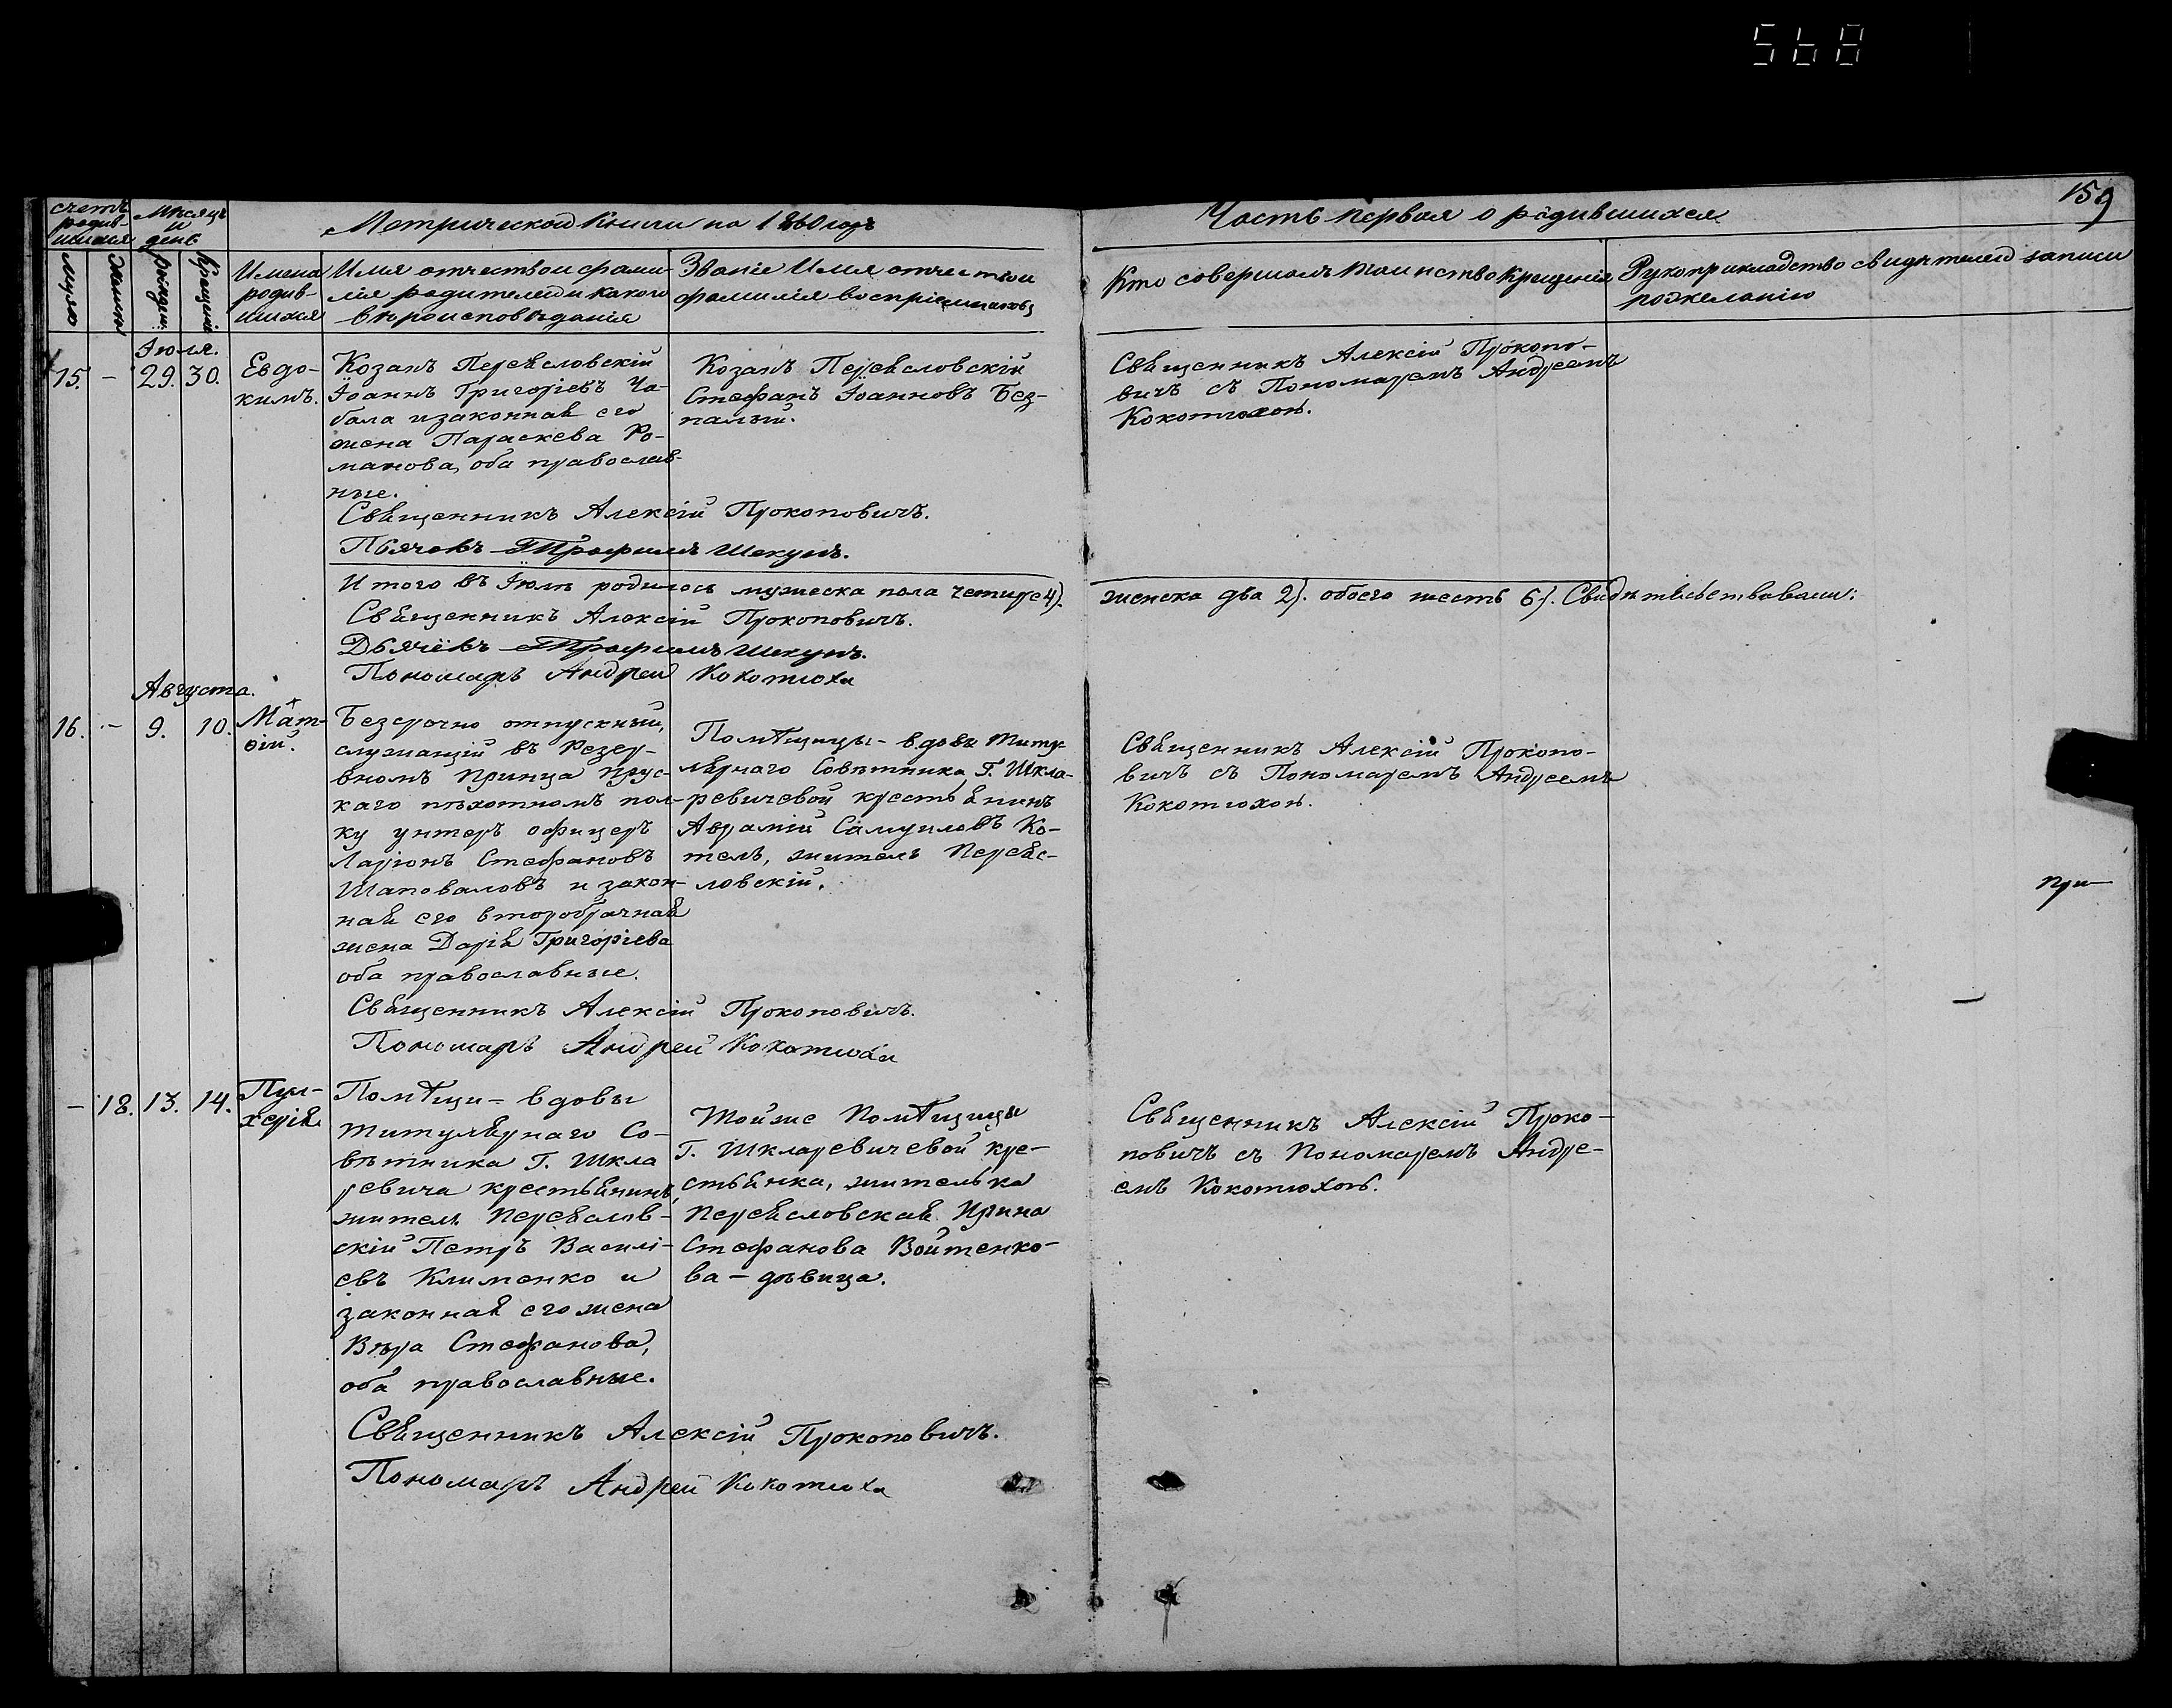 568
159
Метрической Книги на 1860 годъ
Часть первая о родившихся
счетъ
родив-
шихся
Мѣсяцъ
и
день
муско
женско
рожден.
крещенія
Имена
родив-
шихся
Имя отчество и фами-
лія родителей и какого
вѣроисповѣданія
Званіе Имя, отчество и
фамилія воспріемниковъ
Кто совершалъ таинство крещенія
Рукоприкладство свидѣтелей записи
по желанію
Іюля.
15. – 29. 30.
Евдо-
кимъ.
Козакъ Переясловскій
Іоаннъ Григоріевъ Ча-
бала и законная его
жена Параскева Ро-
манова, оба православ-
ные.
Козакъ Переясловскій
Стефанъ Іоанновъ Без-
палый.
Священникъ Алексій Прокопо-
вичъ съ Пономаремъ Андреемъ
Кокотюхою.
Священникъ Алексій Прокоповичъ.
Дьячокъ Трофимъ Шекунъ.
Итого въ Іюлѣ родилось мужеска пола четыре 4).
женска два 2). обоего шесть 6). Свидѣтельствовали:
Священникъ Алексій Прокоповичъ.
Дьячёкъ Трофимъ Шекунъ.
Пономарь Андрей Кокотюха
Августа.
16. – 9. 10.
Мат-
ѳій.
Безсрочно отпускный,
служащій въ Резер-
вномъ Принца Прус-
каго пѣхотномъ пол-
ку унтеръ офицеръ
Ларіонъ Стефановъ
Шаповаловъ и закон-
ная его второбрачная
жена Дарія Григоріева
оба православные.
Помѣщицы - вдовы Титу-
лярнаго Совѣтника Г. Шкла-
ревичевой крестьянинъ
Аврамій Самуиловъ Ко-
тель, житель Переяс-
ловскій.
Священникъ Алексій Прокопо-
вичъ съ Пономаремъ Андреемъ
Кокотюхою.
при
Священникъ Алексій Прокоповичъ.
Пономарь Андрей Кокотюха
– 18. 13. 14.
Пул-
херія
Помѣщи- вдовы
Титулярнаго Со-
вѣтника Г. Шкла
ревича крестьянинъ,
житель Переяслов-
скій Петръ Василі-
евъ Клименко и
законная его жена
Вѣра Стефанова,
оба православные.
Тойже Помѣщицы
Г. Шкларевичевой кре-
стьянка, жителька
Переясловская Ирина
Стефанова Войтенко-
ва - дѣвица.
Священникъ Алексій Проко-
повичъ съ Пономаремъ Андре-
емъ Кокотюхою.
Священникъ Алексій Прокоповичъ.
Пономарь Андрей Кокотюха